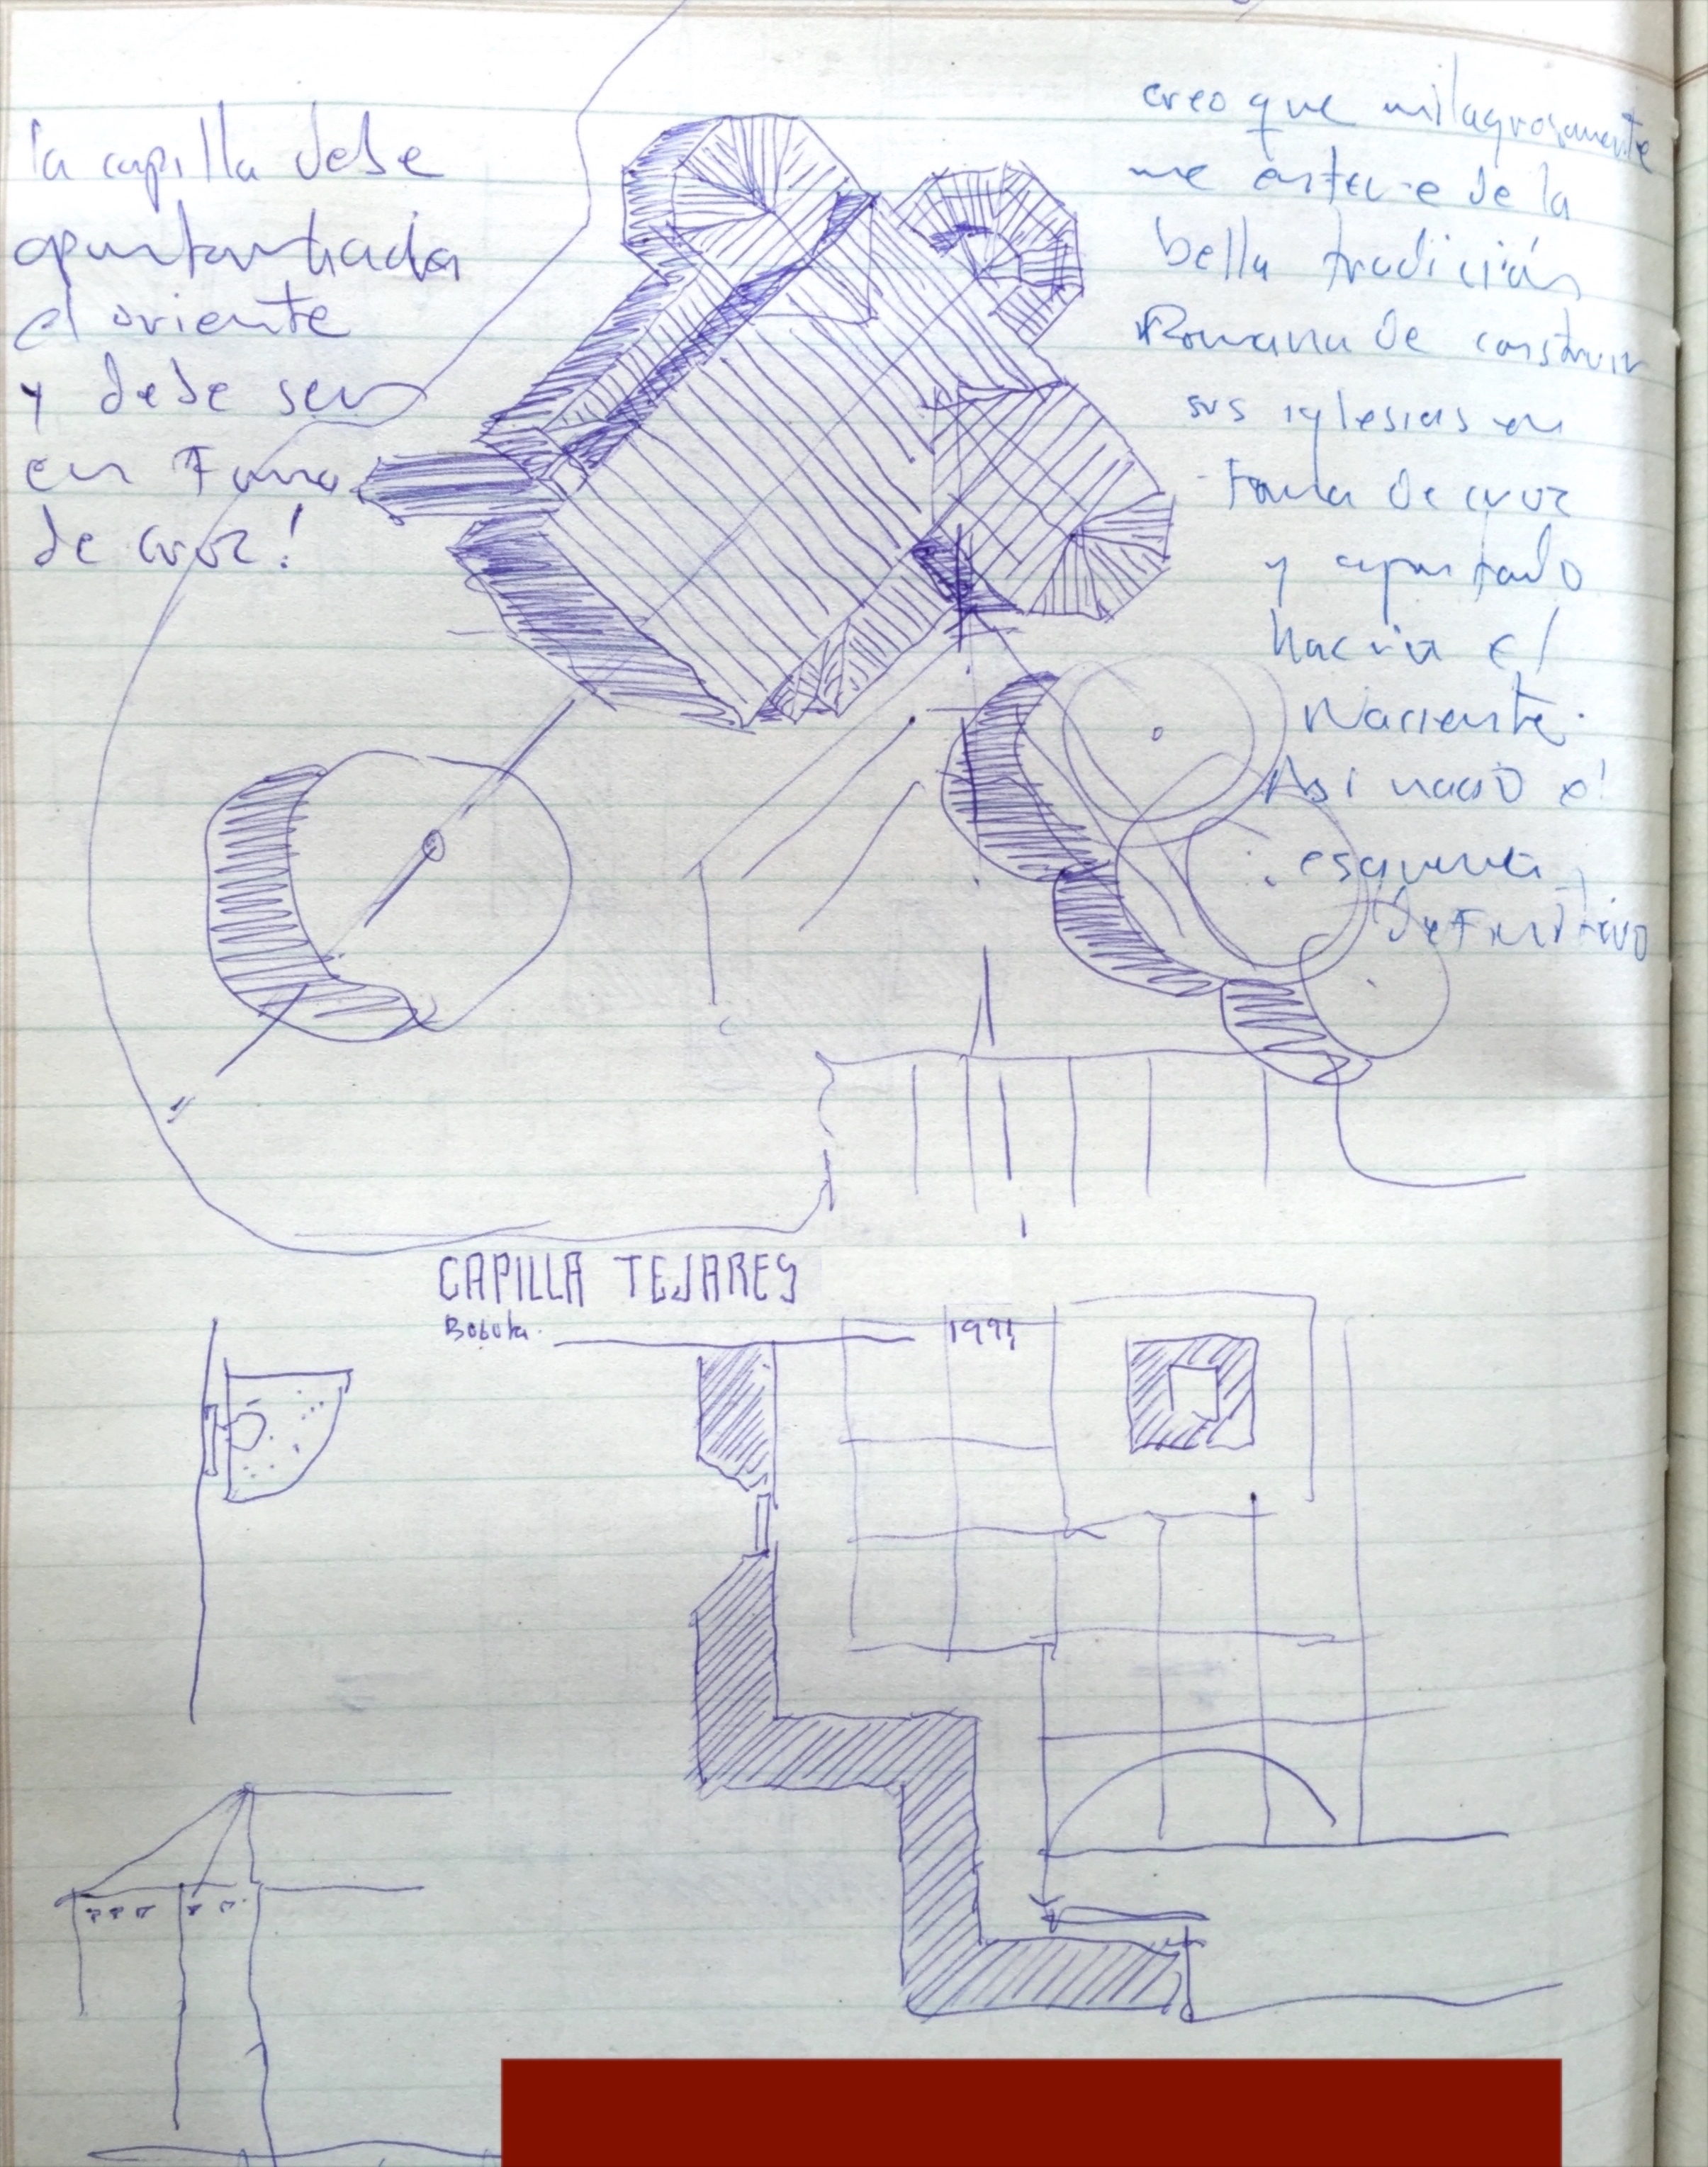 la capilla debe
apuntar hacia
el oriente
y debe ser
en Forma
de cruz!
creo que milagrosamente
me entere de la
bella tradición
Romana de construir
sus iglesias en
forma de cruz
y apuntado
hacia el
Naciente.
Asi nació el
esquema
deFinitivo
CAPILLA TEJARES
Bogota. 1991